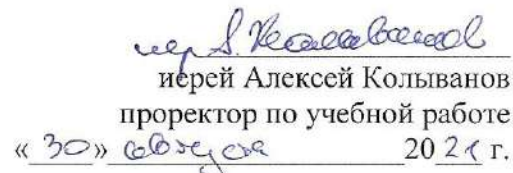 иер. А. Колыванов
иерей Алексей Колыванов
проректор по учебной работе
« 30 » августа 2021 г.